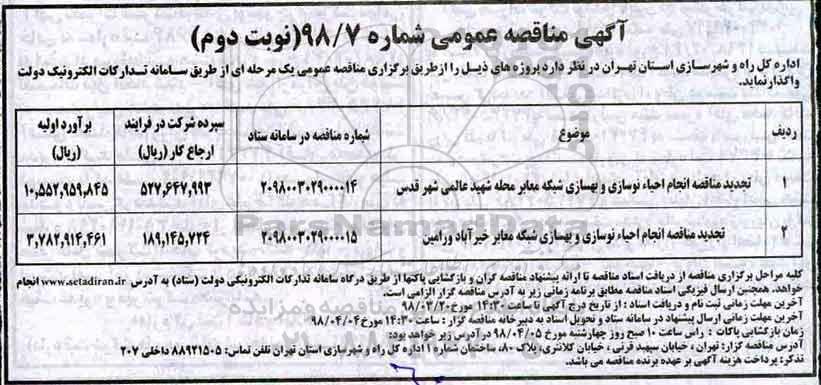 آگهی مناقصه عمومی شماره ۹۸/۷(نوبت دوم)
اداره کل راه و شهرسازی استان تهران در نظر دارد پروژه های ذیل را ازطریق برگزاری مناقصه عمومی یک مرحله ای از طریق سامانه تدارکات الکترونیک دولت
واگذار نماید.
ردیف موضوع شماره مناقصه در سامانه ستاد سپرده شرکت در فرایند ارجاع کار (ریال) برآورد اولیه (ریال)
۱ تجدید مناقصه انجام احیاء نوسازی و بهسازی شبکه معابر محله شهید عالمی شهر قدس ۲۰۹۸۰۰۳۰۲۹۰۰۰۰۱۴ ۵۲۷,۶۴۷,۹۹۳ ۱۰,۵۵۲,۹۵۹,۸۴۵
۲ تجدید مناقصه انجام احیاء نوسازی و بهسازی شبکه معابر خیرآباد ورامین ۲۰۹۸۰۰۳۰۲۹۰۰۰۰۱۵ ۱۸۹,۱۴۵,۷۲۴ ۳,۷۸۲,۹۱۴,۴۶۱
ParsNamadData
کلیه مراحل برگزاری مناقصه از دریافت اسناد مناقصه تا ارائه پیشنهاد مناقصه گران و بازگشایی پاکتها از طریق درگاه سامانه تدارکات الکترونیکی دولت (ستاد) به آدرس www.setadiran.ir انجام
خواهد. همچنین ارسال فیزیکی اسناد مناقصه مطابق برنامه زمانی زیر به آدرس مناقصه گزار الزامی است.
آخرین مهلت زمانی ثبت نام و دریافت اسناد : از تاریخ درج آگهی تا ساعت ۱۴:۳۰ مورخ ۹۸/۰۳/۲۰
آخرین مهلت زمانی ارسال پیشنهاد در سامانه ستاد و تحویل اسناد به دبیرخانه مناقصه گزار : ساعت ۱۴:۳۰ مورخ ۹۸/۰۴/۰۴
زمان بازگشایی پاکات : راس ساعت ۱۰ صبح روز چهارشنبه مورخ ۹۸/۰۴/۰۵ در آدرس زیر خواهد بود.
آدرس مناقصه گزار: تهران ، خیابان سپهبد قرنی ، خیابان کلانتری، پلاک ۸۰، ساختمان شماره ۱ اداره کل راه و شهرسازی استان تهران تلفن تماس: ۸۸۹۲۱۵۰۵ داخلی ۲۰۷
تذکر: پرداخت هزینه آگهی بر عهده برنده مناقصه می باشد.